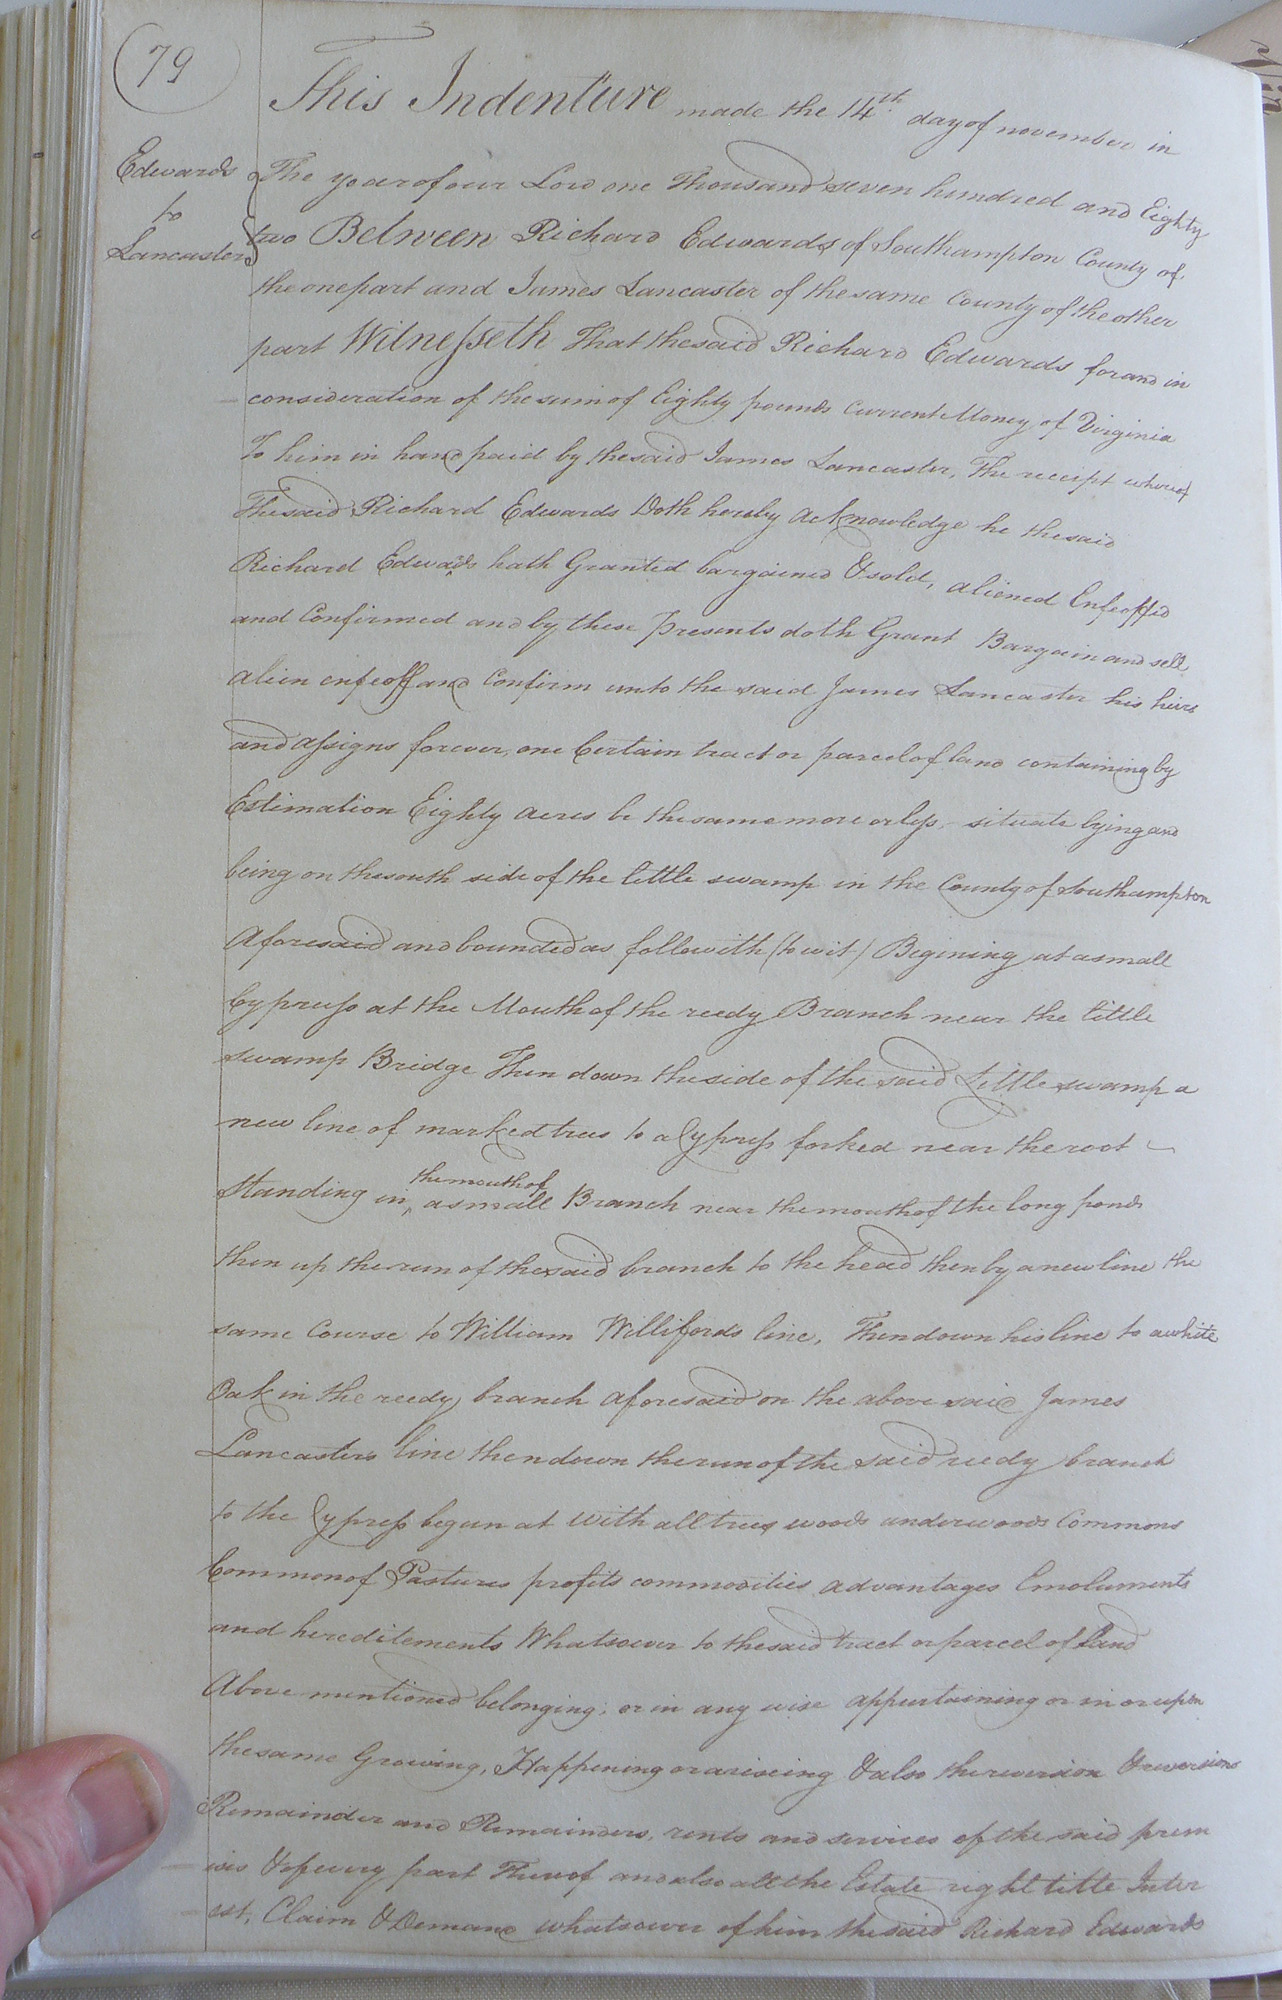 79
This Indenture made the 14th day of november in
Edwards
to
Lancaster
The year of our Lord one Thousand seven hundred and Eighty
two Between Richard Edwards of Southampton County of
the one part and James Lancaster of the same County of the other
part Witnesseth That the said Richard Edwards for and in
consideration of the sum of Eighty pounds Current Money of Virginia
To him in hand paid by the said James Lancaster, The receipt whereof
The said Richard Edwards Doth hereby acknowledge he the said
Richard Edwards hath Granted bargained & sold, aliened Enfeoffed
and Confirmed and by these Presents doth Grant Bargain and sell
alien enfeoff and Confirm unto the said James Lancaster his heirs
and assigns forever, one Certain tract or parcel of land containing by
Estimation Eighty acres be the same more or less, situate lying and
being on the south side of the little swamp in the County of Southampton
Aforesaid and bounded as followith (to wit) Begining at a small
Cypress at the Mouth of the reedy Branch near the little
swamp Bridge Then down the side of the said Little swamp a
new line of marked trees to a Cypress forked near the root
Standing in the mouth of a small Branch near the mouth of the long pond
then up the run of the said branch to the head then by a new line the
same Course to William Willifords line, Then down his line to a white
Oak in the reedy branch aforesaid on the above said James
Lancasters line then down the run of the said reedy branch
to the Cypress begun at with all trees woods underwoods Commons
Common of Pastures profits commodities advantages Emoluments
and hereditements Whatsoever to the said tract or parcel of Land
Above mentioned belonging; or in any wise appurtaining or in or upon
the same Growing, Happening or ariseing & also the reversion & reversions
Remainder and Remainders, rents and services of the said prem
ises & of every part Thereof and also all the Estate right title Inter
est, Claim & Demand whatsoever of him the said Richard Edwards